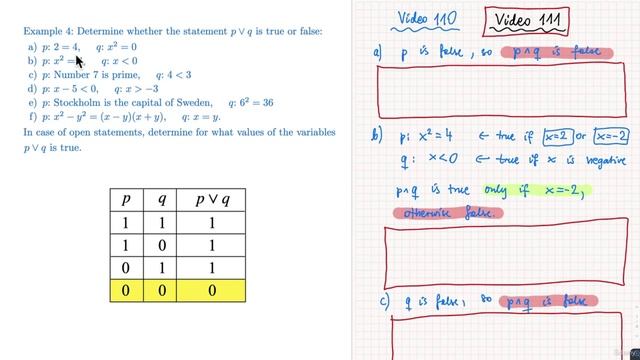 Example 4: Determine whether the statement p ∨ q is true or false:
a) p: 2 = 4, q: x² = 0
b) p: x² = , q: x < 0
c) p: Number 7 is prime, q: 4 < 3
d) p: x − 5 < 0, q: x > −3
e) p: Stockholm is the capital of Sweden, q: 6² = 36
f) p: x² − y² = (x − y)(x + y), q: x = y.
In case of open statements, determine for what values of the variables
p ∨ q is true.
p q p ∨ q
1 1 1
1 0 1
0 1 1
0 0 0
Video 110 Video 111
a) p is false, so p∧q is false
b) p: x² = 4 ← true if x=2 or x=-2
q: x<0 ← true if x is negative
p∧q is true only if x=-2,
otherwise false.
c) q is false, so p∧q is false